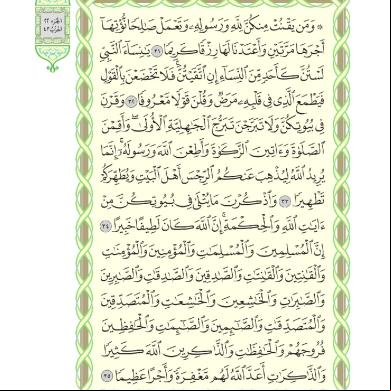 الجزء ٢٢
الحزب ٤٣
۞ وَمَن يَقْنُتْ مِنكُنَّ لِلَّهِ وَرَسُولِهِۦ وَتَعْمَلْ صَٰلِحًا نُّؤْتِهَآ
أَجْرَهَا مَرَّتَيْنِ وَأَعْتَدْنَا لَهَا رِزْقًا كَرِيمًا ٣١ يَٰنِسَآءَ ٱلنَّبِيِّ
لَسْتُنَّ كَأَحَدٍ مِّنَ ٱلنِّسَآءِ إِنِ ٱتَّقَيْتُنَّۚ فَلَا تَخْضَعْنَ بِٱلْقَوْلِ
فَيَطْمَعَ ٱلَّذِى فِى قَلْبِهِۦ مَرَضٌ وَقُلْنَ قَوْلًا مَّعْرُوفًا ٣٢ وَقَرْنَ
فِى بُيُوتِكُنَّ وَلَا تَبَرَّجْنَ تَبَرُّجَ ٱلْجَٰهِلِيَّةِ ٱلْأُولَىٰۖ وَأَقِمْنَ
ٱلصَّلَوٰةَ وَءَاتِينَ ٱلزَّكَوٰةَ وَأَطِعْنَ ٱللَّهَ وَرَسُولَهُۥٓۚ إِنَّمَا
يُرِيدُ ٱللَّهُ لِيُذْهِبَ عَنكُمُ ٱلرِّجْسَ أَهْلَ ٱلْبَيْتِ وَيُطَهِّرَكُمْ
تَطْهِيرًا ٣٣ وَٱذْكُرْنَ مَا يُتْلَىٰ فِى بُيُوتِكُنَّ مِنْ
ءَايَٰتِ ٱللَّهِ وَٱلْحِكْمَةِۚ إِنَّ ٱللَّهَ كَانَ لَطِيفًا خَبِيرًا ٣٤
إِنَّ ٱلْمُسْلِمِينَ وَٱلْمُسْلِمَٰتِ وَٱلْمُؤْمِنِينَ وَٱلْمُؤْمِنَٰتِ
وَٱلْقَٰنِتِينَ وَٱلْقَٰنِتَٰتِ وَٱلصَّٰدِقِينَ وَٱلصَّٰدِقَٰتِ وَٱلصَّٰبِرِينَ
وَٱلصَّٰبِرَٰتِ وَٱلْخَٰشِعِينَ وَٱلْخَٰشِعَٰتِ وَٱلْمُتَصَدِّقِينَ
وَٱلْمُتَصَدِّقَٰتِ وَٱلصَّٰٓئِمِينَ وَٱلصَّٰٓئِمَٰتِ وَٱلْحَٰفِظِينَ
فُرُوجَهُمْ وَٱلْحَٰفِظَٰتِ وَٱلذَّٰكِرِينَ ٱللَّهَ كَثِيرًا
وَٱلذَّٰكِرَٰتِ أَعَدَّ ٱللَّهُ لَهُم مَّغْفِرَةً وَأَجْرًا عَظِيمًا ٣٥